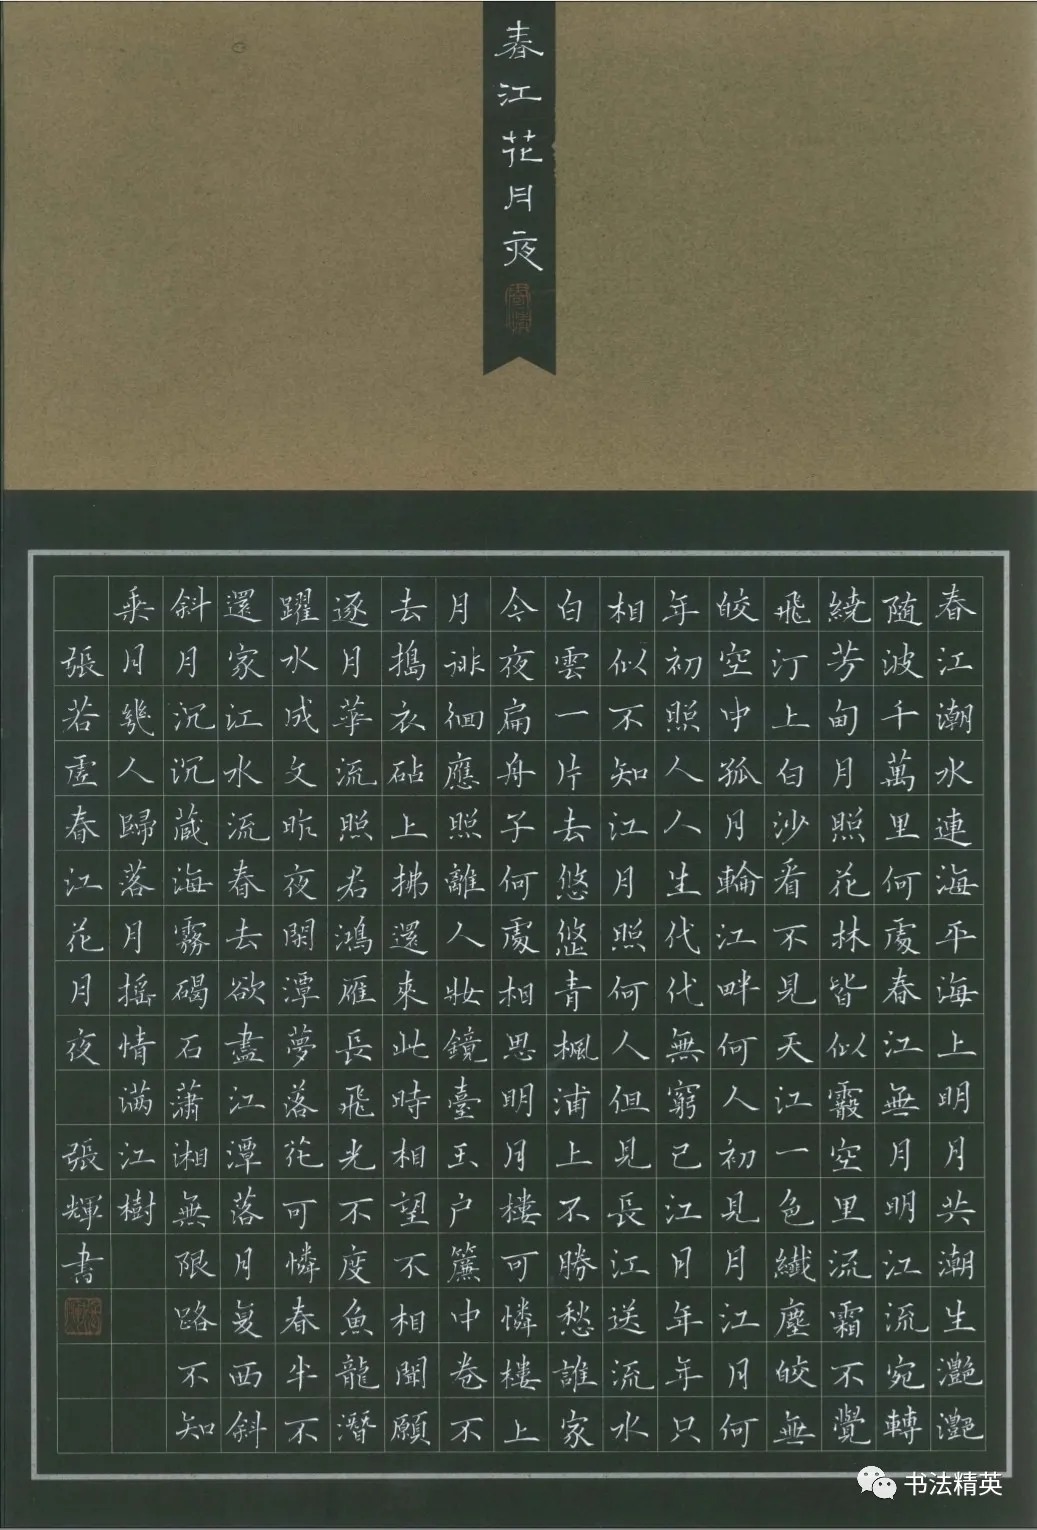 春江花月夜
春江潮水連海平海上明月共潮生灧灧
随波千萬里何處春江無月明江流宛轉
繞芳甸月照花林皆似霰空里流霜不覺
飛汀上白沙看不見天江一色纖塵皎無
皎空中孤月輪江畔何人初見月江月何
年初照人人生代代無窮已江月年年只
相似不知江月照何人但見長江送流水
白雲一片去悠悠青楓浦上不勝愁誰家
今夜扁舟子何處相思明月樓可憐樓上
月徘徊應照離人妝鏡臺玉户簾中卷不
去搗衣砧上拂還來此時相望不相聞願
逐月華流照君鴻雁長飛光不度魚龍潛
躍水成文昨夜閑潭夢落花可憐春半不
還家江水流春去欲盡江潭落月复西斜
斜月沉沉藏海霧碣石瀟湘無限路不知
乘月幾人歸落月摇情满江樹
張若虛春江花月夜 張輝書
书法精英